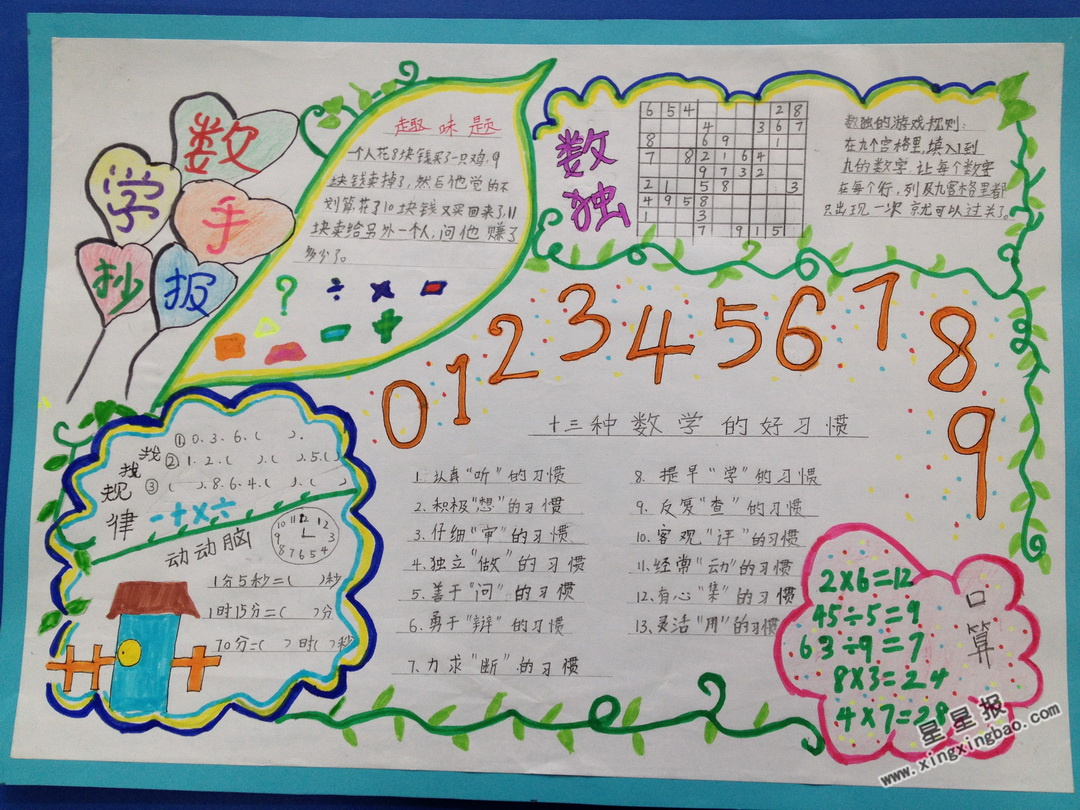 数学手抄报
趣味题
一个人花8块钱买了一只鸡,9
块钱卖掉了,然后他觉的不
划算,花了10块钱又买回来了,11
块卖给另外一个人,问他赚了
多少了。
? ÷ × -
- +
数独
6 5 4 2 8
4 3 6 7
8 6 9 1
7 8 2 1 6 4
9 7 3 2
2 1 5 8 3
4 9 5 8
1 3
7 9 1 5
数独的游戏规则:
在九个宫格里,填入1到
九的数字,让每个数字
在每个行,列及九宫格里都
只出现一次 京尤可以过关了。
0 1 2 3 4 5 6 7 8 9
十三种数学的好习惯
1.认真“听”的习惯
2.积极“想”的习惯
3.仔细“审”的习惯
4.独立“做”的习惯
5.善于“问”的习惯
6.勇于“辩”的习惯
7.力求“断”的习惯
8.提早“学”的习惯
9.反复“查”的习惯
10.客观“评”的习惯
11.经常“动”的习惯
12.有心“集”的习惯
13.灵活“用”的习惯
找找规律
①0.3.6.( ).
②1.2.( ).( ).5.( )
③( ).8.6.4.( ).( )
-+×÷
动动脑
12 1 2 3 4 5 6 7 8 9 10 11
1分5秒=( )秒
1时15分=( )分
70分=( )时( )秒
口算
2×6=12
45÷5=9
63÷9=7
8×3=24
4×7=28
星星报
www.xingxingbao.com